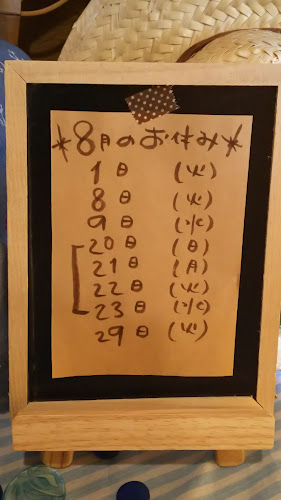 *8月のお休み*
1日 (火)
8日 (火)
9日 (水)
20日 (日)
21日 (月)
22日 (火)
23日 (水)
29日 (火)